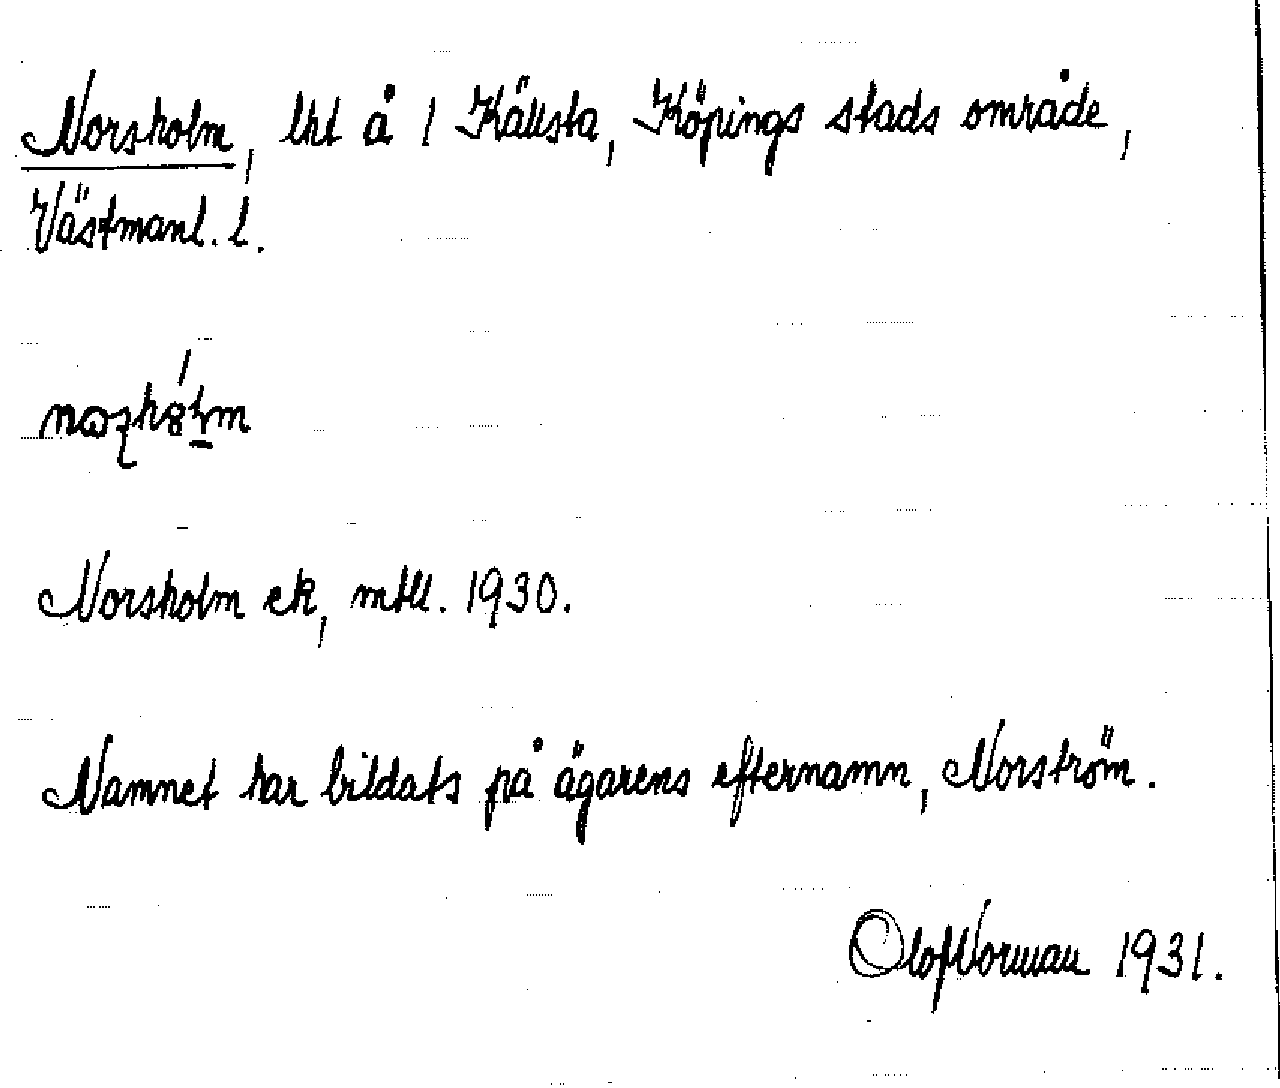 Norsholm, lht å 1 Källsta, Köpings stads område,
Västmanl. l.
Norsholm ek, mtll. 1930.
Namnet har bildats på ägarens efternamn, Norström.
Olof Norman 1931.